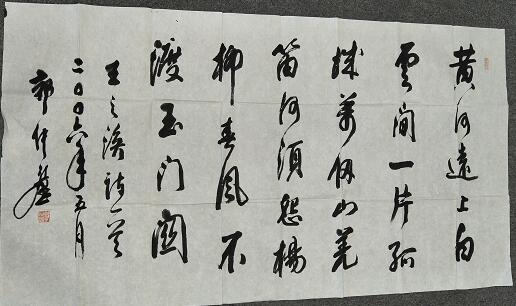 黄河遠上白
雲间一片孤
城萬仞山羌
笛何須怨楊
柳春风不
渡玉门関
王之涣诗一首
二〇〇六年五月
郭